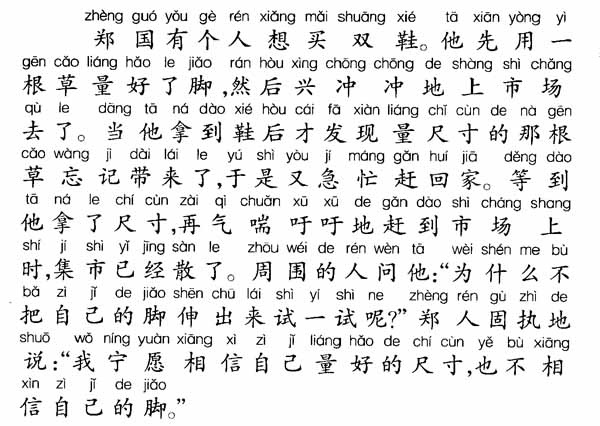 zhèng guó yǒu gè rén xiǎng mǎi shuāng xié tā xiān yòng yì
郑国有个人想买双鞋。他先用一
gēn cǎo liáng hǎo le jiǎo rán hòu xìng chōng chōng de shàng shì chǎng
根草量好了脚,然后兴冲冲地上市场
qù le dāng tā ná dào xié hòu cái fā xiàn liáng chǐ cùn de nà gēn
去了。当他拿到鞋后才发现量尺寸的那根
cǎo wàng jì dài lái le yú shì yòu jí máng gǎn huí jiā děng dào
草忘记带来了,于是又急忙赶回家。等到
tā ná le chǐ cùn zài qì chuǎn xū xū de gǎn dào shì cháng shang
他拿了尺寸,再气喘吁吁地赶到市场上
shí jí shì yǐ jīng sàn le zhōu wéi de rén wèn tā wèi shén me bù
时,集市已经散了。周围的人问他:“为什么不
bǎ zì jǐ de jiǎo shēn chū lái shì yí shì ne zhèng rén gù zhì de
把自己的脚伸出来试一试呢?”郑人固执地
shuō wǒ nìng yuàn xiāng xì zì jǐ liáng hǎo de chǐ cùn yě bù xiāng
说:“我宁愿相信自己量好的尺寸,也不相
xìn zì jǐ de jiǎo
信自己的脚。”